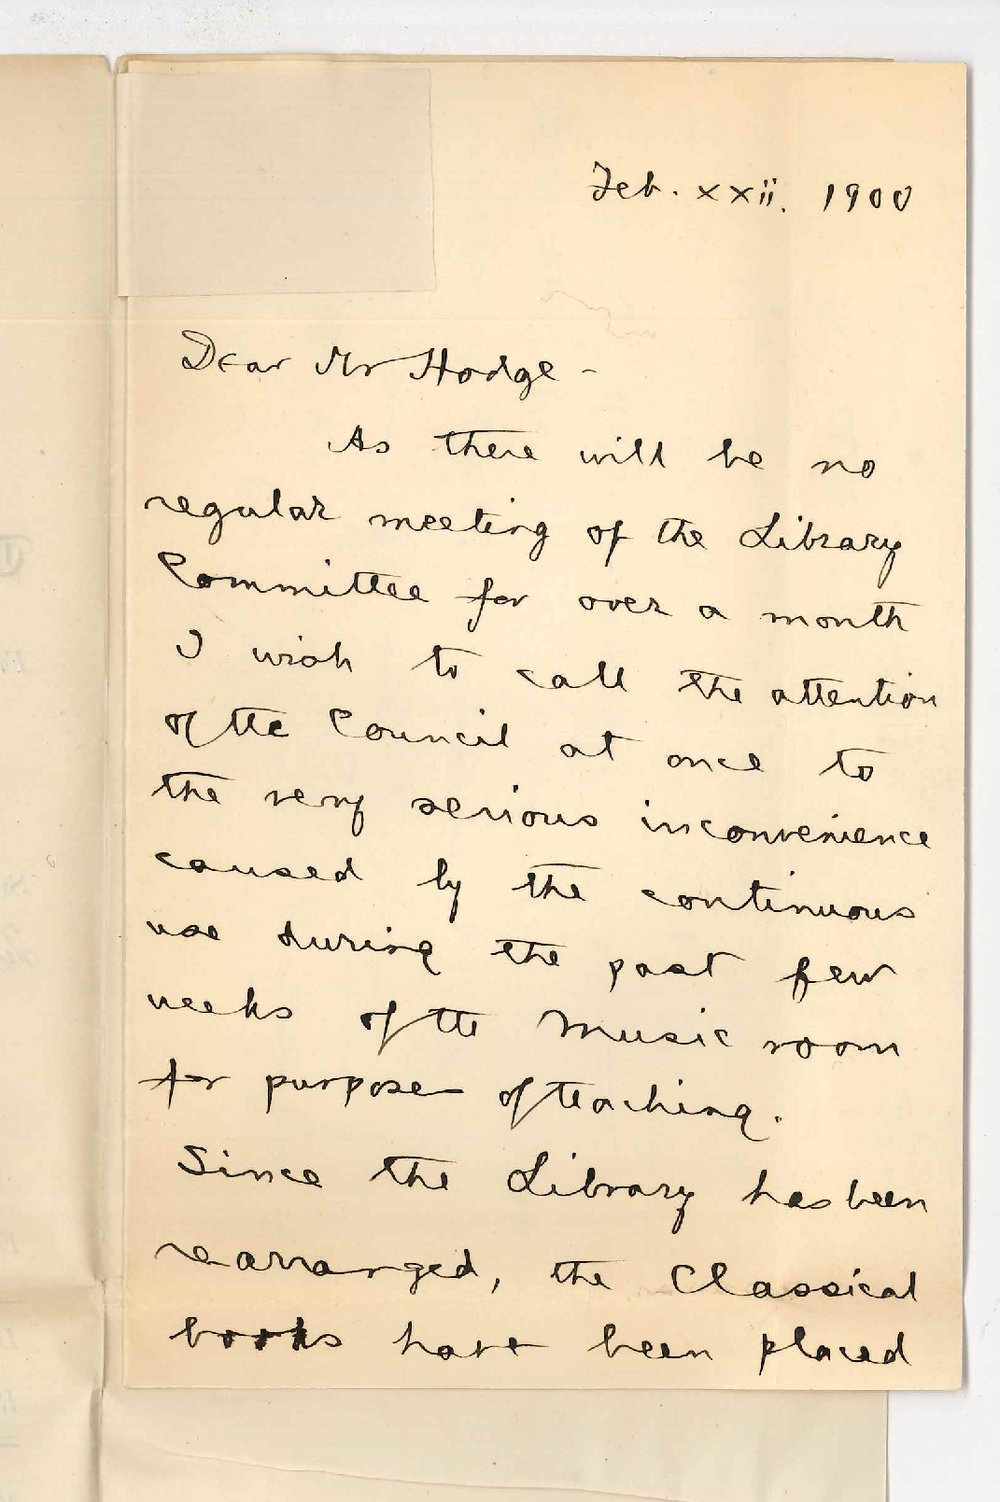 Feb. xxii. 1900
Dear Mr Hodge -
As there will be no
regular meeting of the Library
Committee for over a month
I wish to call the attention
of the Council at once to
the very serious inconvenience
caused by the continuous
use during the past few
weeks of the Music room
for purposes of teaching.
Since the Library has been
rearranged, the Classical
books have been placed